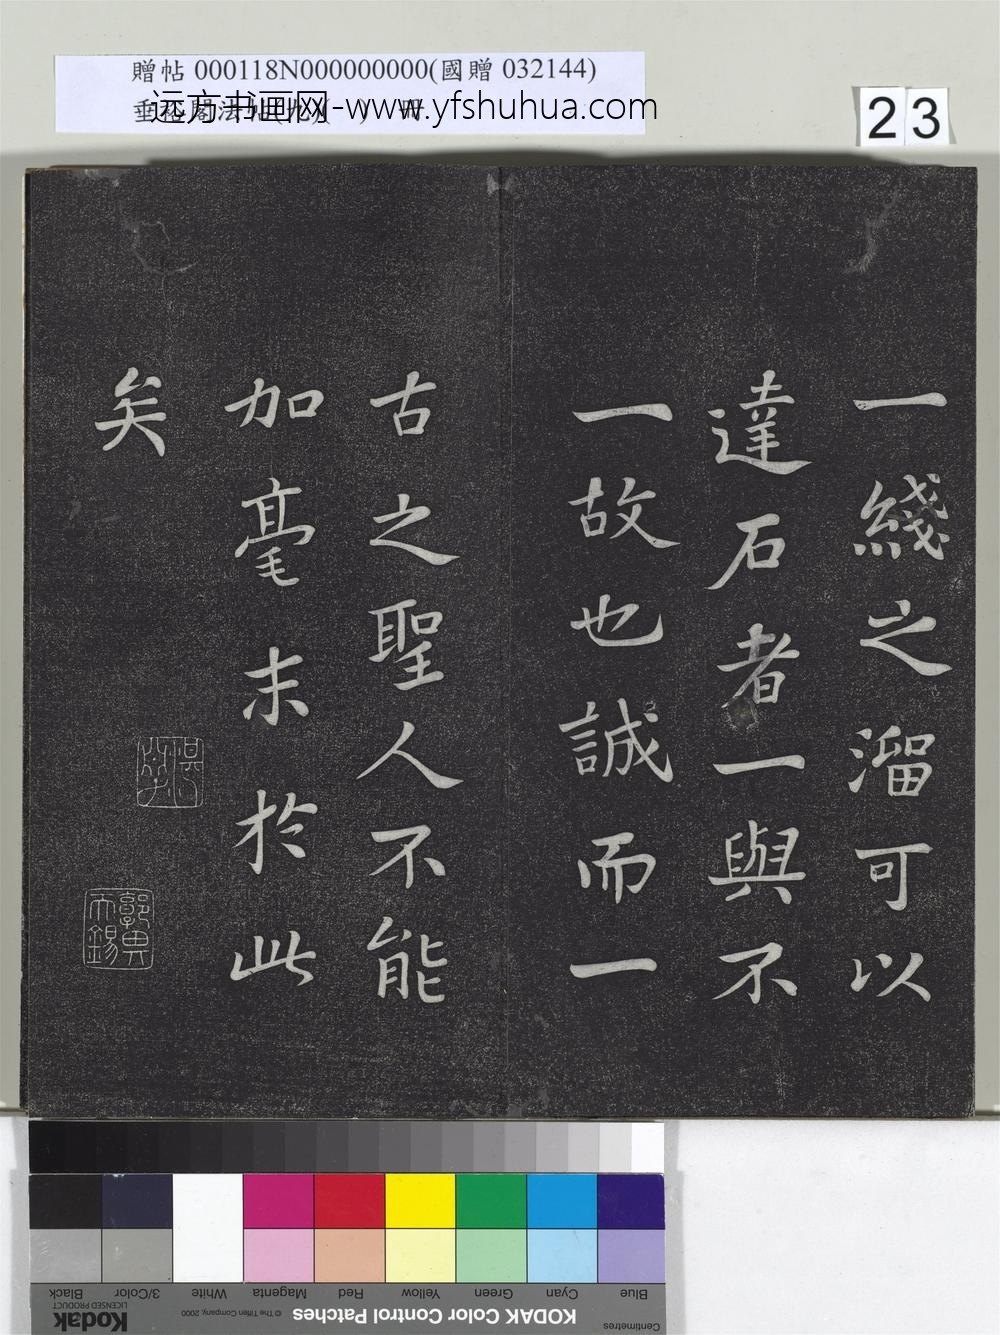 贈帖 000118N000000000(國贈 032144)
远方书画网-www.yfshuhua.com
23
一綫之溜可以
達石者一與不
一故也誠而一
古之聖人不能
加毫末於此
矣
Blue
Cyan
Green
Yellow
Red
Magenta
White
3/Color
Black
Centimetres
KODAK Color Control Patches
© The Tiffen Company, 2000
Kodak
LICENSED PRODUCT